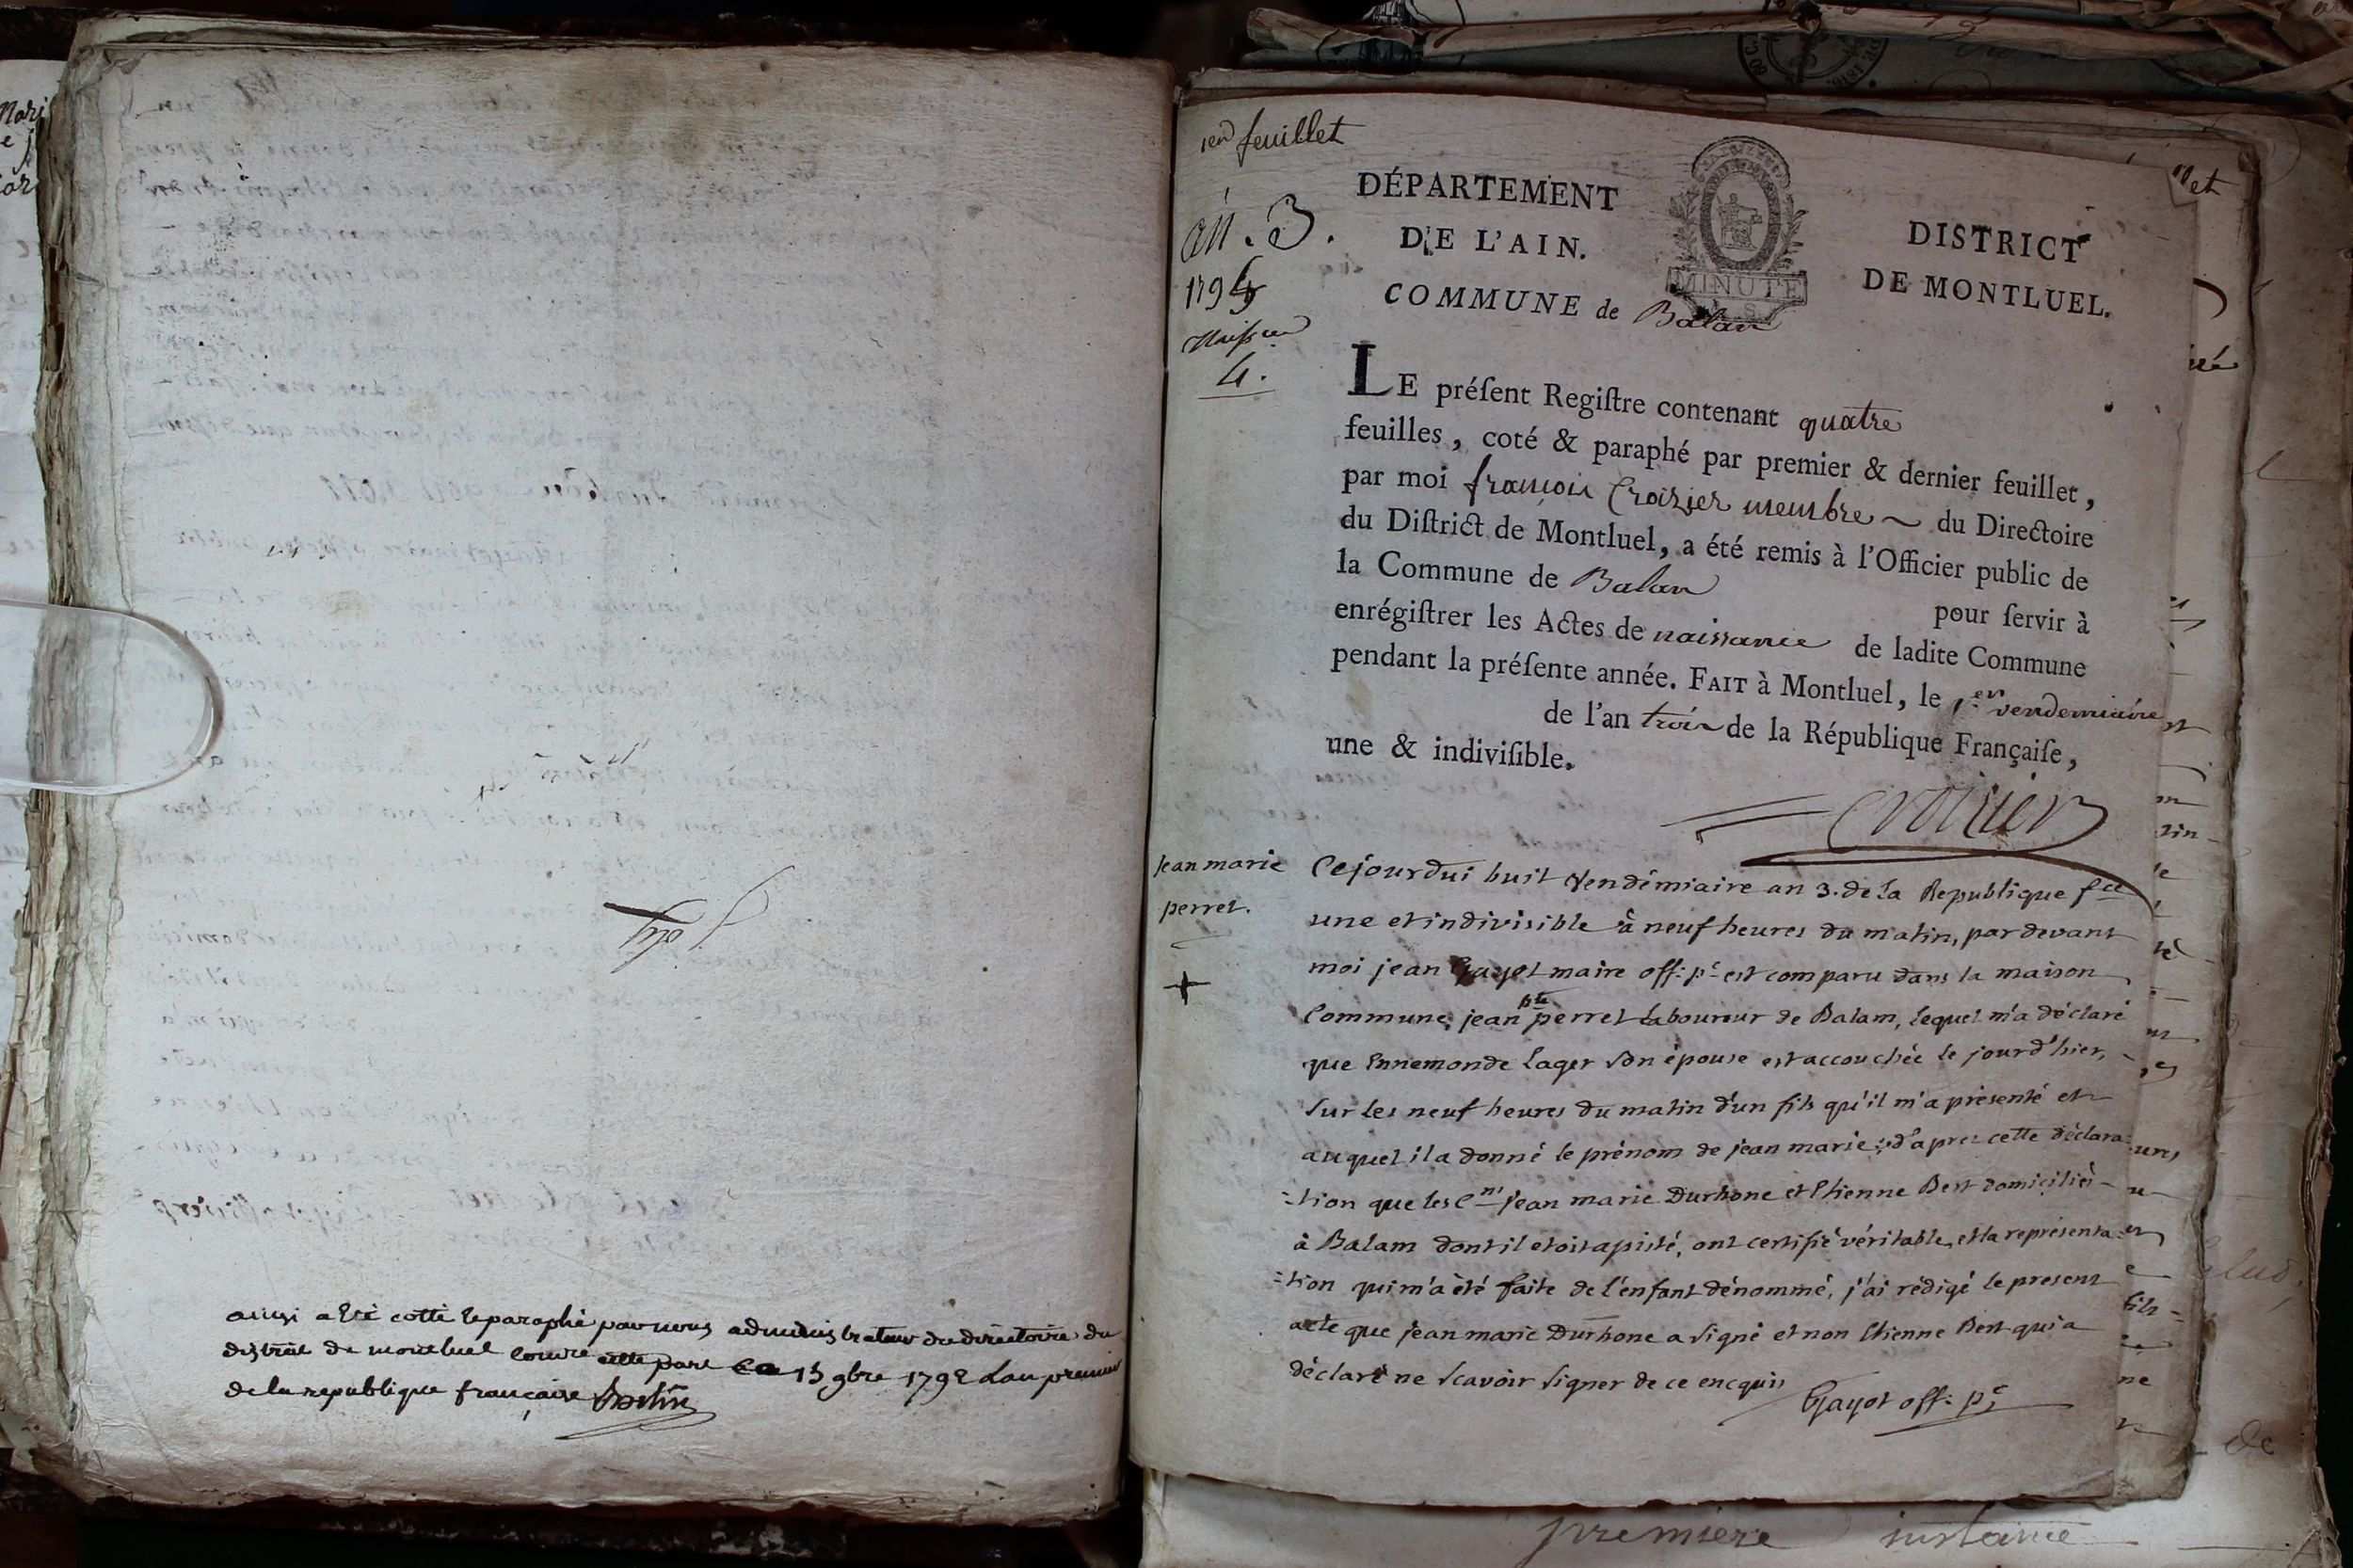 ainsi a été cotté et paraphé par nous administrateur du directoire du
district de montluel contre cette part ce 15 9bre 1792 L'an premier
de la republique française
1er feuillet
an . 3 .
1794
4 .
DÉPARTEMENT
DE L'AIN.
COMMUNE de Balan
MINUTE
DISTRICT
DE MONTLUEL.
LE préſent Regiſtre contenant quatre
feuilles, coté & paraphé par premier & dernier feuillet,
par moi françois Croizier membre ~ du Directoire
du Diſtrict de Montluel, a été remis à l'Officier public de
la Commune de Balan pour ſervir à
enrégiſtrer les Actes de naissance de ladite Commune
pendant la préſente année. FAIT à Montluel, le 1.er vendemiaire
de l'an trois de la République Françaiſe,
une & indiviſible.
Croizier
Jean marie
perret.
+
Cejourdui huit Vendémiaire an 3. de la Republique fce
une et indivisible à neuf heures du matin, par devant
moi jean Gayot maire off: pc est comparu dans la maison
Commune, jean Bte perret Laboureur de Balam, lequel m'a déclaré
que Ennemonde Lager son épouse est accouchée le jourd'hier,
sur les neuf heures du matin d'un fils qu'il m'a présenté et
auquel il a donné le prénom de jean marie; d'apres cette déclara-
:tion que les Cns jean marie Durhone et Etienne Bert domiciliés
à Balam dont il etoit apisté, ont certifié véritable, et la représenta-
:tion qui m'a été faite de l'enfant dénommé, j'ai rédigé le present
acte que jean marie Durhone a signé et non Etienne Bert qui a
déclaré ne scavoir signer de ce encquis
Gayot off: pc
premiere instance